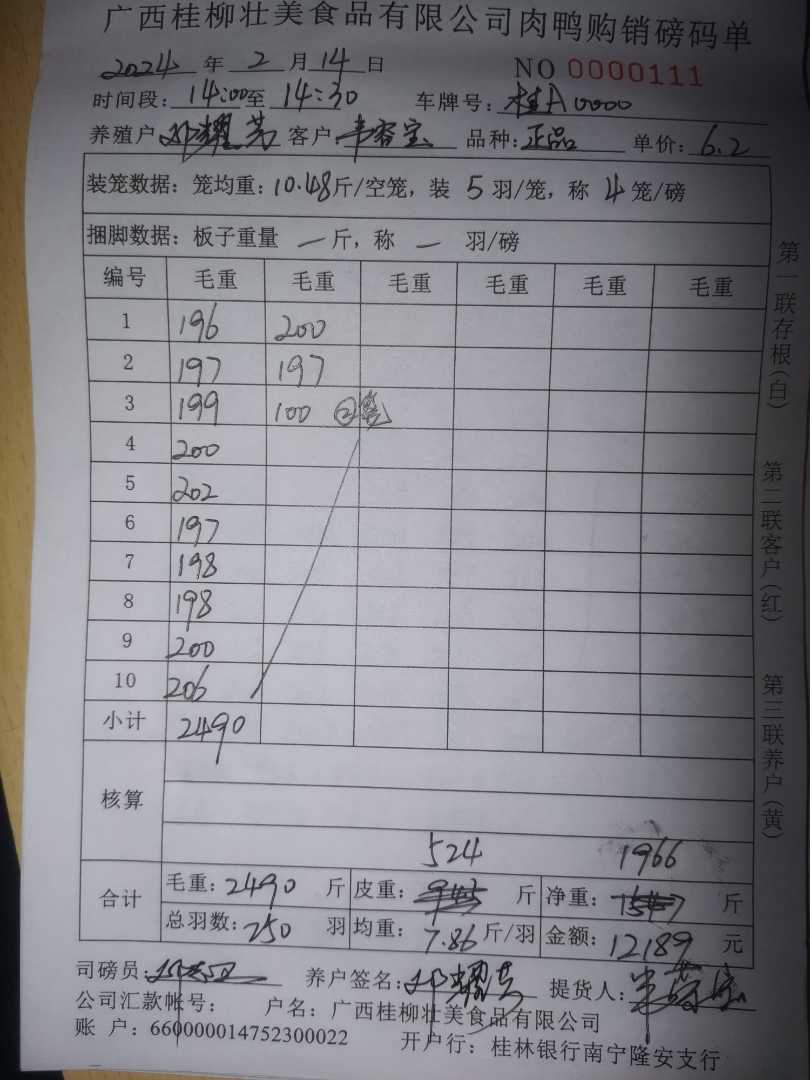 广西桂柳壮美食品有限公司肉鸭购销磅码单
2024 年 2 月 14 日 NO 0000111
时间段: 14:00 至 14:30 车牌号: 桂A0000
养殖户 客户: 品种: 正品 单价: 6.2
装笼数据: 笼均重: 10.48 斤/空笼, 装 5 羽/笼, 称 4 笼/磅
捆脚数据: 板子重量 一 斤, 称 一 羽/磅
编号 毛重 毛重 毛重 毛重 毛重 毛重
1 196 200
2 197 197
3 199 100 ②笼
4 200
5 202
6 197
7 198
8 198
9 200
10 206
小计 2490
核算
524 1966
合计 毛重: 2490 斤 皮重: 斤 净重: 斤
总羽数: 250 羽 均重: 7.86 斤/羽 金额: 12189 元
司磅员: 养户签名: 提货人:
公司汇款帐号: 户名: 广西桂柳壮美食品有限公司
账 户: 660000014752300022 开户行: 桂林银行南宁隆安支行
第一联存根(白)
第二联客户(红)
第三联养户(黄)